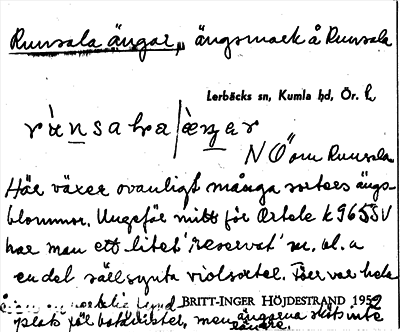 Runsala ängar, ängsmark å Runsala
Lerbäcks sn, Kumla hd, Ör. l.
NÖ om Runsala
Här växer ovanligt många sorters ängs-
blommor. Ungefär mitt för Artele k 9655V
har man ett litet "reservat" m. bl. a
en del sällsynta violsorter. Förr var hela
BRITT-INGER HÖJDESTRAND 1952
plats för men ängarna slås inte
senare.